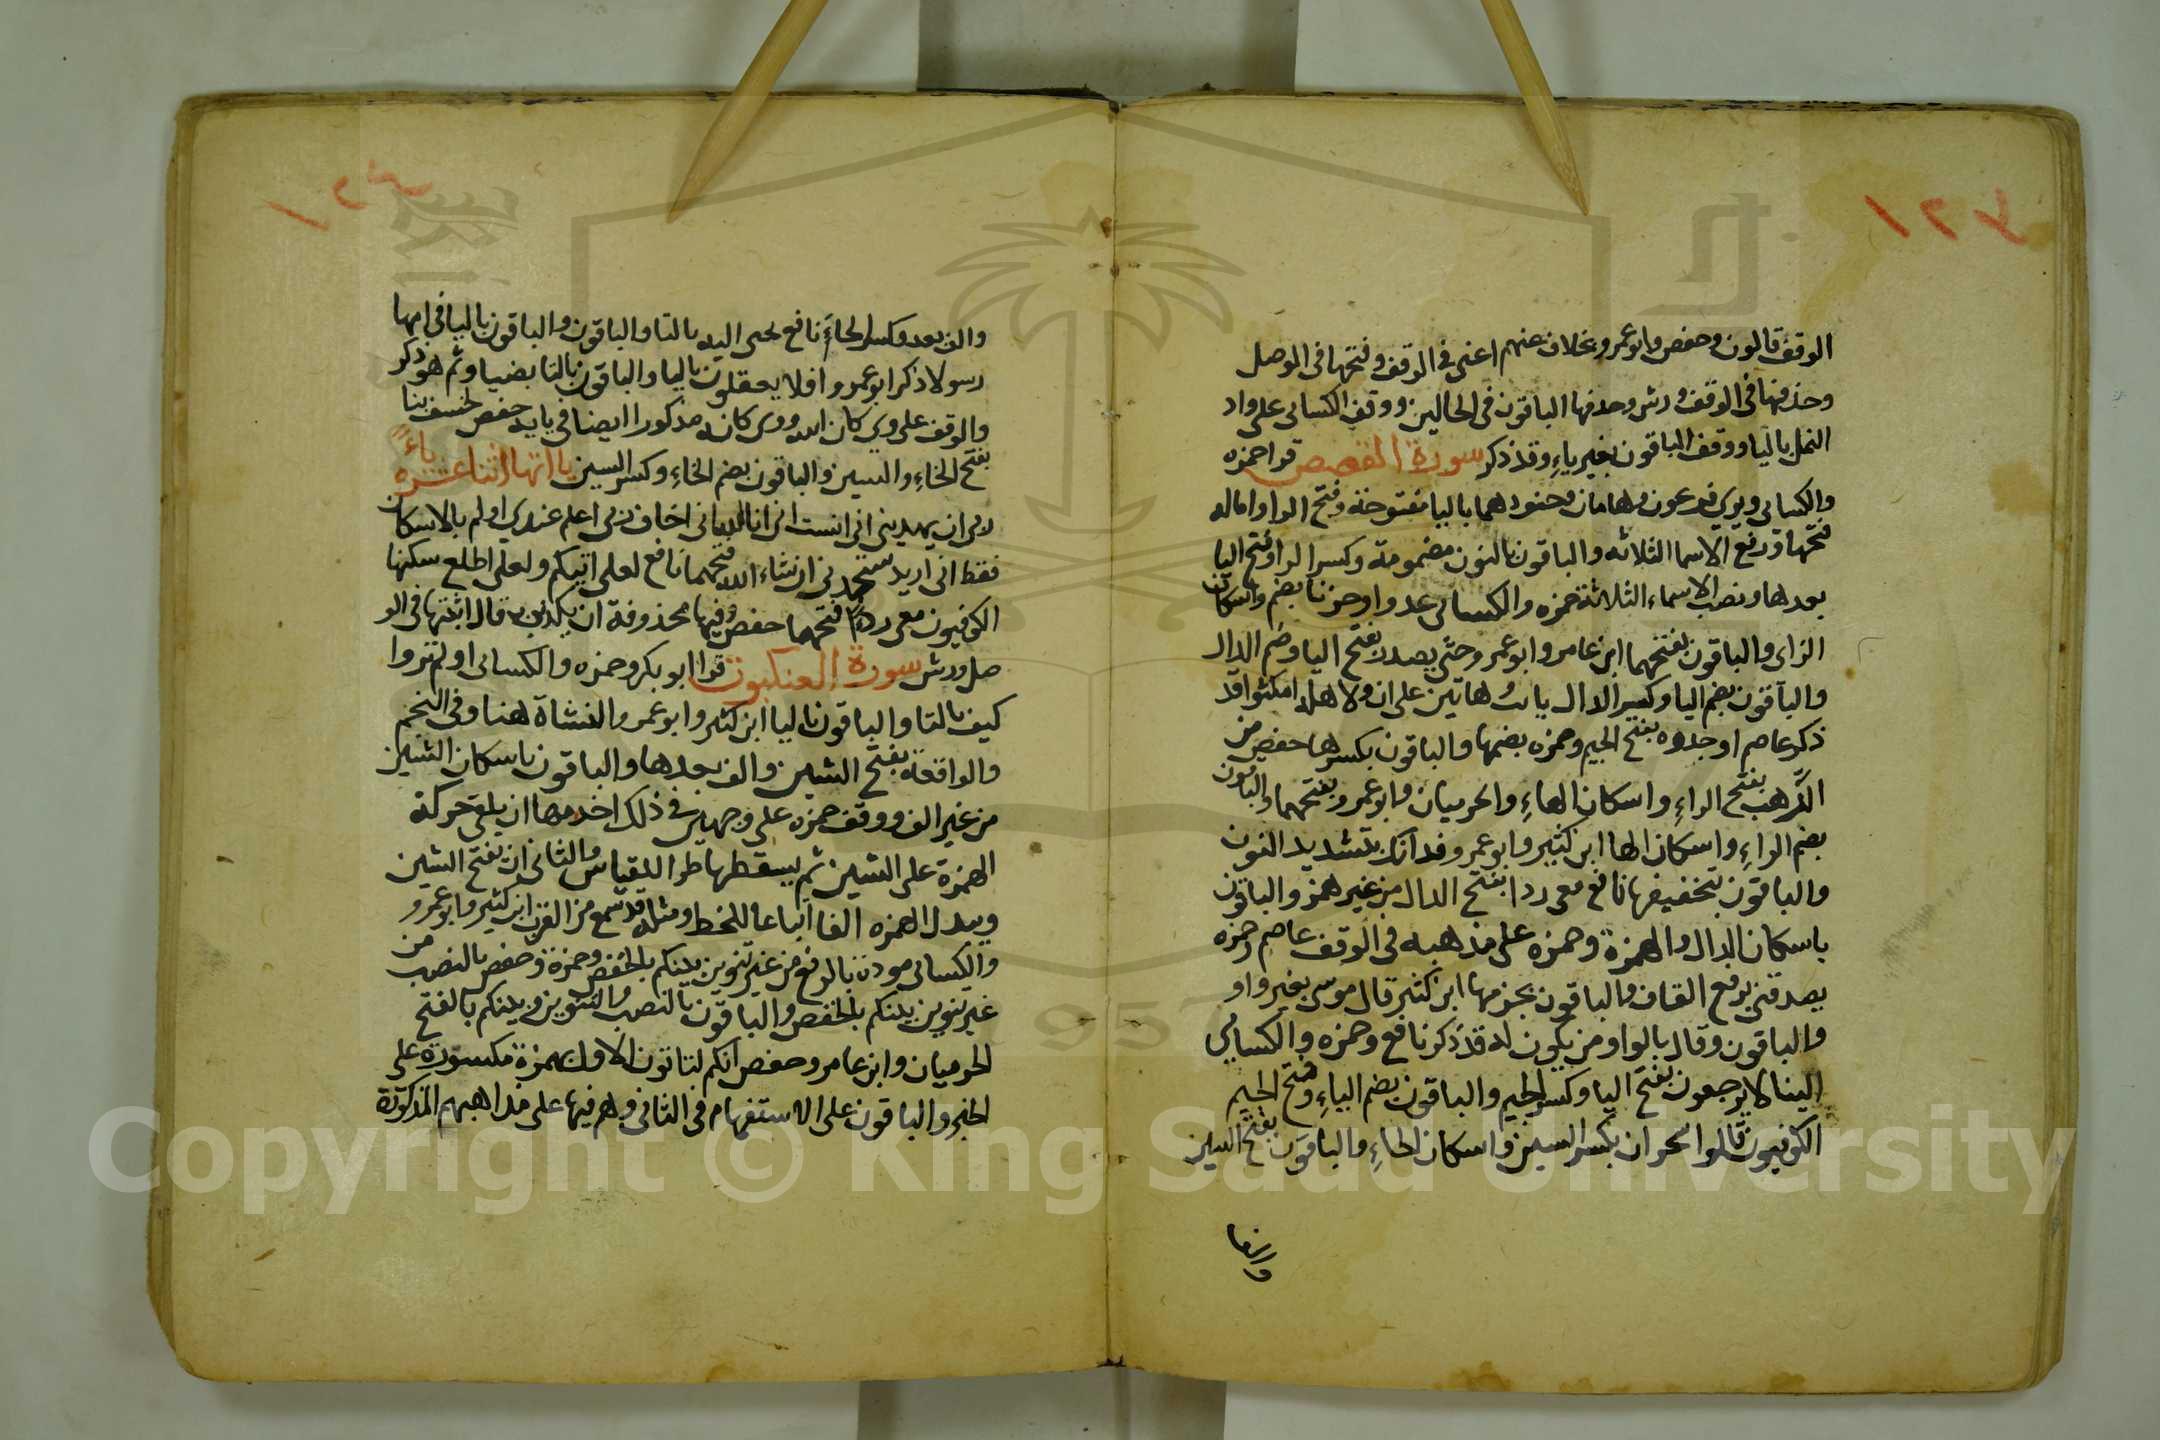 الوقف قالون وحفص وابو عمرو بخلاف عنهم اعنى فى الوقف وفتحها فى الوصل
وحذفها فى الوقف ورش وحذفها الباقون فى الحالين ووقف الكسائى على واد
النمل باليا ووقف الباقون بغير ياءِ وقد ذكر سورة القصص قرا حمزه
والكسائى ويرى فرعون وهامان وجنودهما باليا مفتوحة وفتح الرا وامالة
فتحها ورفع الاسما الثلاثه والباقون بالنون مضمومة وكسر الرا وفتح اليا
بعدها ونصب الاسماء الثلاثة حمزه والكسائى عدوا وحزنا بضم واسكان
الزاى والباقون بفتحهما ابن عامر وابو عمرو حتى يصدر بفتح اليا وضم الدال
والباقون بضم اليا وكسر الدال يابت هاتين على ان ولاهله امكثوا قد
ذكر عاصم او جذوه بفتح الجيم وحمزه بضمها والباقون بكسرها حفص من
الرَّهب بفتح الراءِ واسكان الهاءِ والحرميان وابو عمرو بفتحهما والباقون
بضم الراءِ واسكان الها ابن كثير وابو عمرو فذانك بتشديد النون
والباقون بتخفيفها نافع معى ردا بفتح الدال من غير همز والباقون
باسكان الدال والهمزة وحمزه على مذهبه فى الوقف عاصم وحمزه
يصدقنى برفع القاف والباقون بجزمها ابن كثير قال موسى بغير واو
والباقون وقال بالواو من يكون له قد ذكر نافع وحمزه والكسائى
الينا لا يرجعون بفتح اليا وكسر الجيم والباقون بضم الياءِ وفتح الجيم
الكوفيون قالوا سحران بكسر السين واسكان الحاءِ والباقون بفتح السين
والف بعد وكسر الحاءَ نافع تجبى اليه بالتا والباقون والباقون باليا فى امها
رسولا ذكر ابو عمرو افلا يعقلون باليا والباقون بالتا بضياء وثم هو ذكر
والوقف على وى كان الله ووى كانه مذكورا ايضا فى بابه حفص لخسف بنا
بفتح الخاءِ والسين والباقون بضم الخاءِ وكسر السين يا اتها اثنا عشره ياءً
ربى ان يهدينى انى انست انى انا الله انى اخاف ربى اعلم عندى اولم بالاسكان
فقط انى اريد ستجدنى ان شاء الله فتحهما نافع لعلى اتيكم ولعلى اطلع سكنها
الكوفيون معى ردءً فتحهما حفص وفيها محذوفة ان يكذبون قال اثبتها فى الو
صل ورش سورة العنكبوت قرا ابو بكر وحمزه والكسائى اولم تروا
كيف بالتا والباقون باليا ابن كثير وابو عمرو النشاة هنا وفى النجم
والواقعة بفتح الشين والف بعدها والباقون باسكان الشين
من غير الف ووقف حمزه على وجهين فى ذلك احدهما ان يلقى حركة
الهمزة على الشين ثم يسقطها طردا للقياس والثانى ان يفتح الشين
ويبدل الهمزه الفا اتباعا للخط ومثله قد سمع من العرب ابن كثير وابو عمرو
والكسائى مودة بالرفع من غير تنوين بينكم بالخفض وحمزة وحفص بالنصب من
غير تنوين بينكم بالخفض والباقون بالنصب والتنوين وبينكم بالفتح
الحرميان وابن عامر وحفص انكم لتاتون الاول بهمزة مكسورة على
الخبر والباقون على الاستفهام فى الثانى وهم فيها على مذاهبهم المذكورة
Copyright © King Saud University
1957